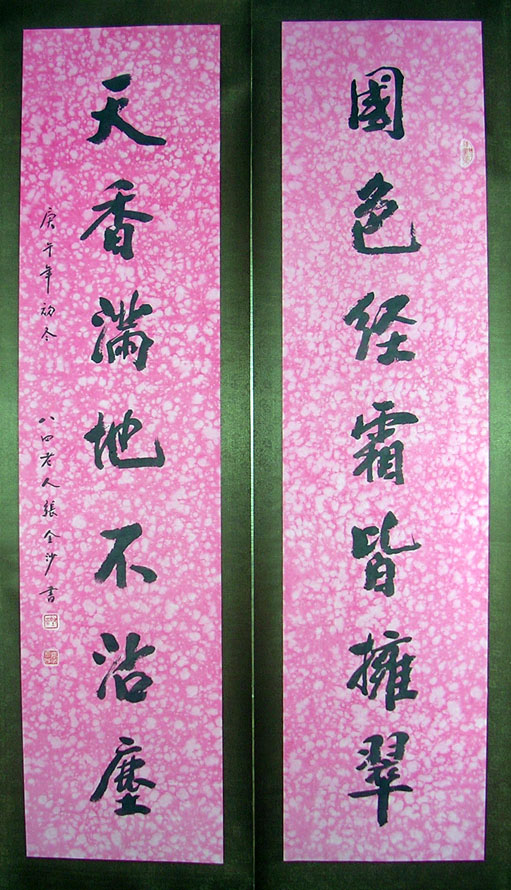 國色经霜皆擁翠
天香滿地不沾塵
庚午年初冬
八口老人張金沙書